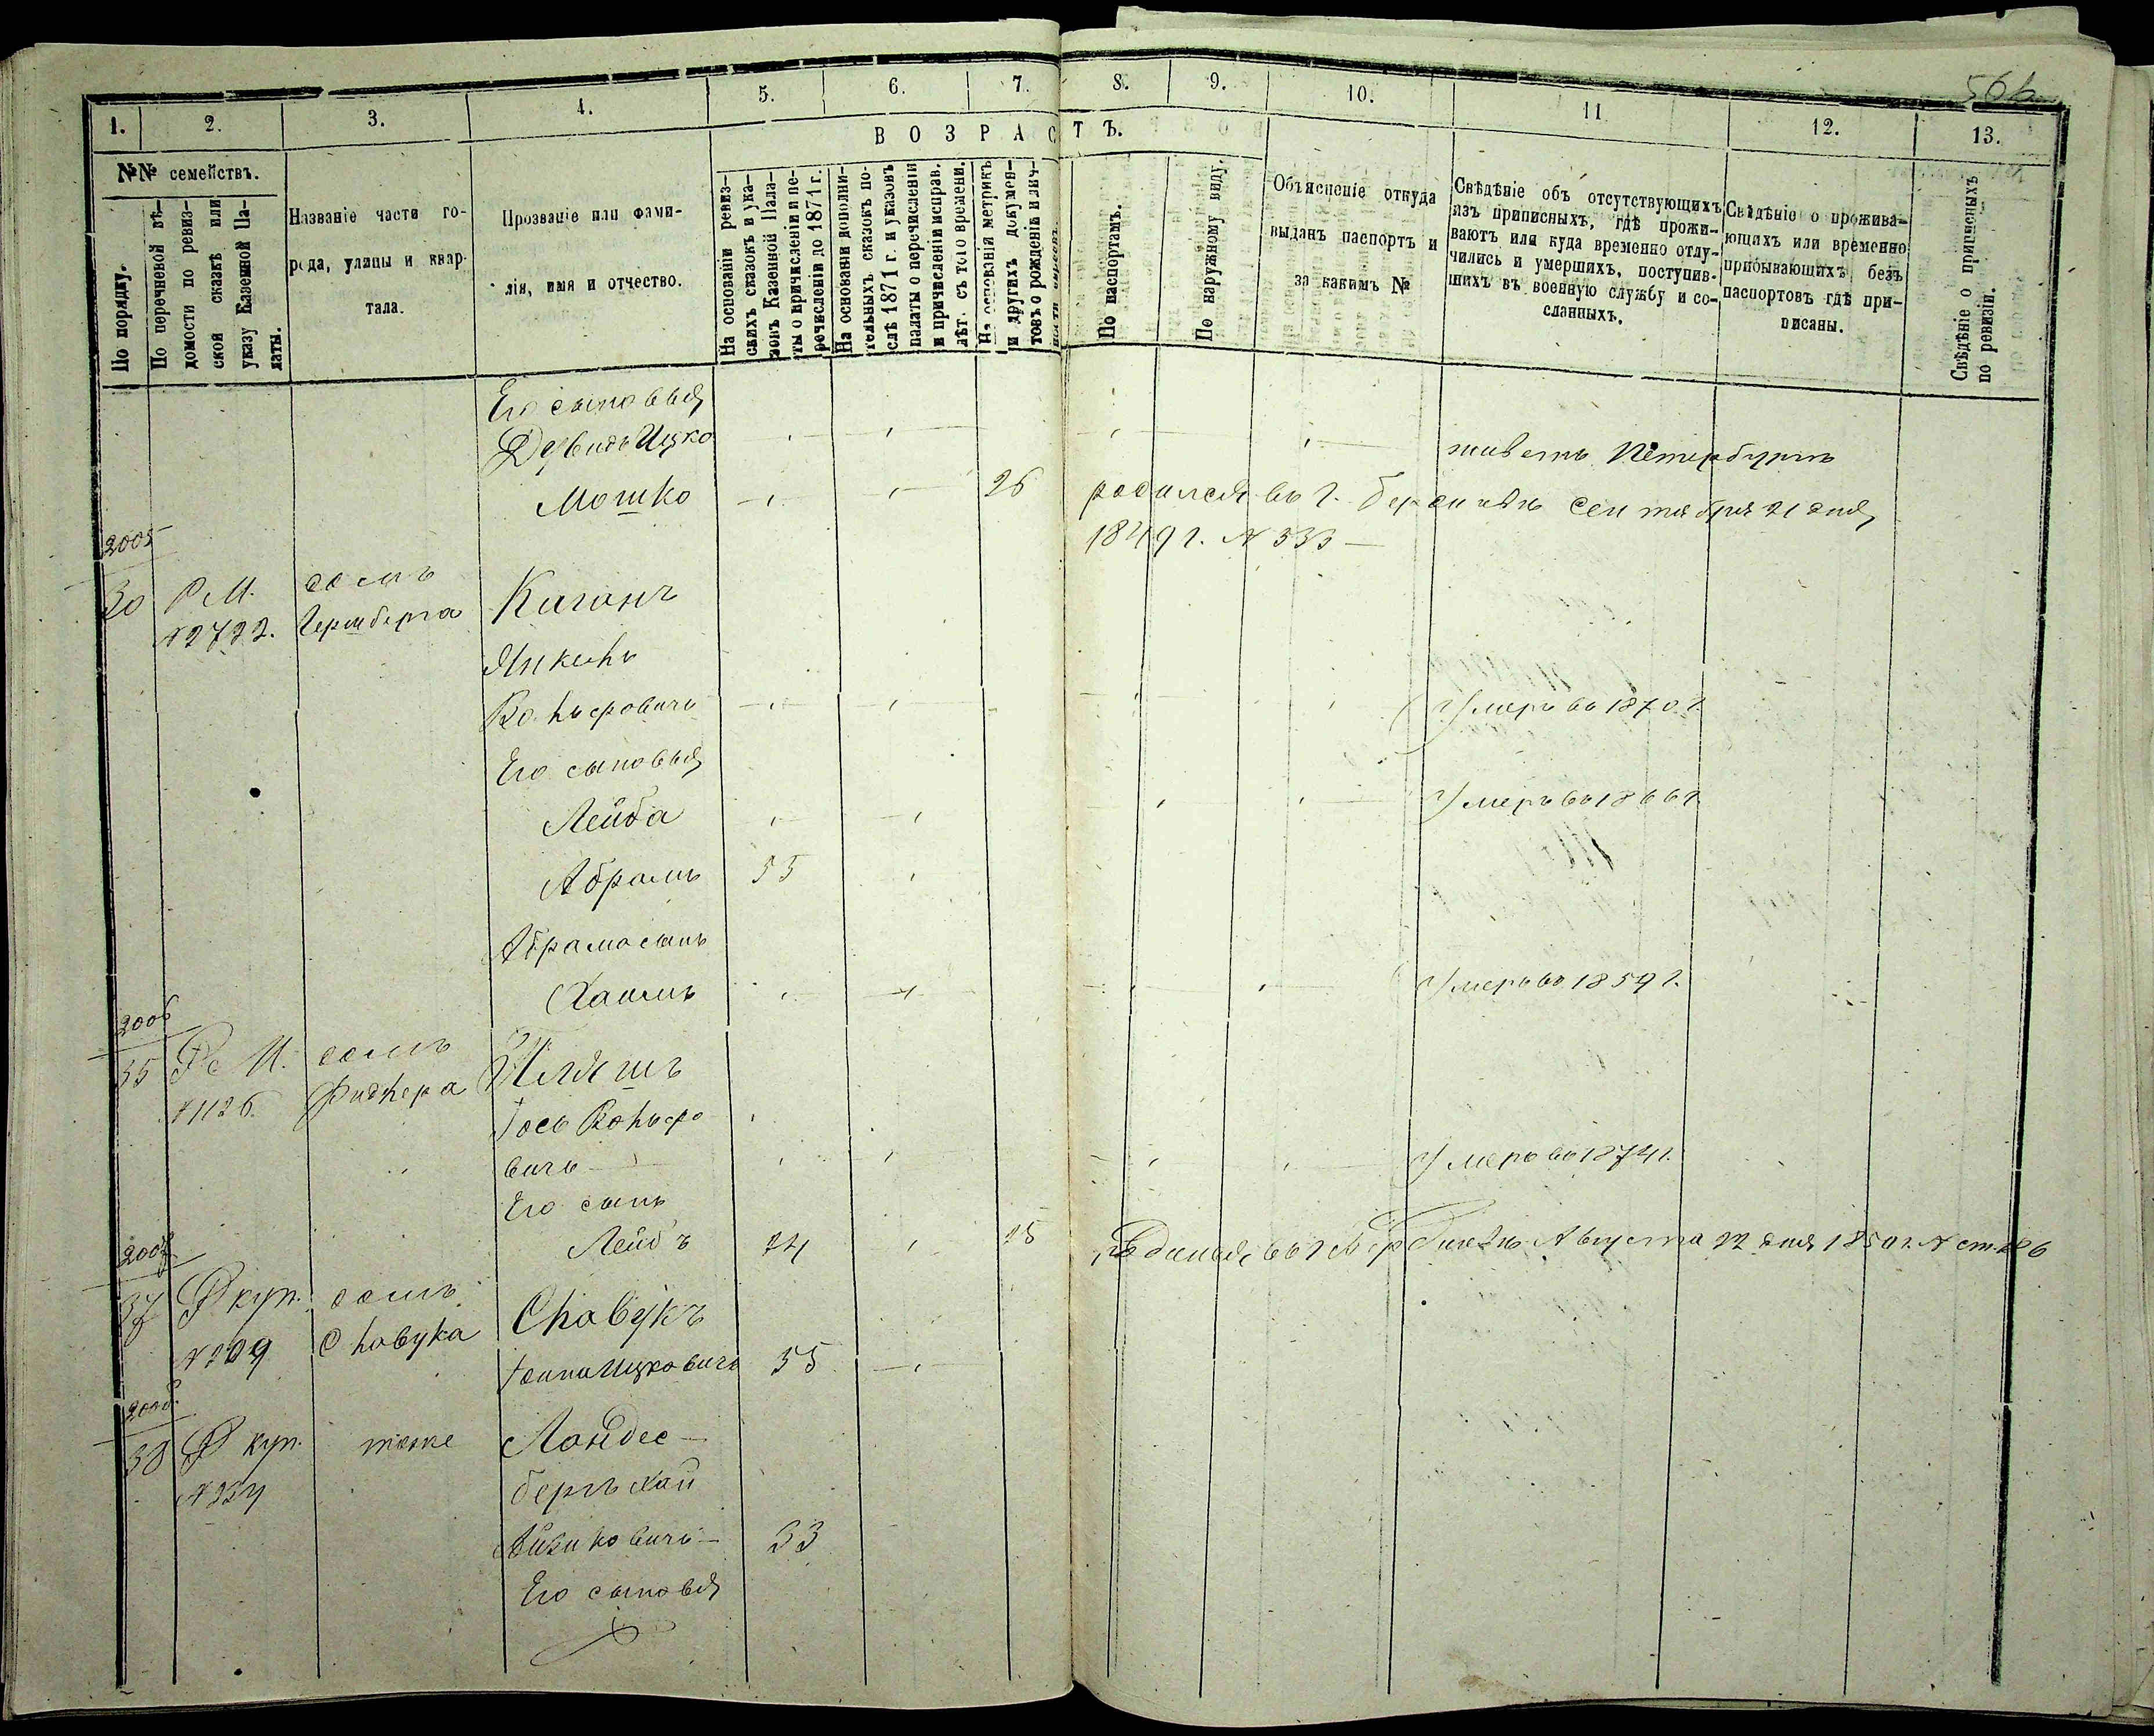 566
1. 2. 3. 4. 5. 6. 7. 8. 9. 10. 11 12. 13.
№№ семействъ.
По порядку.
По перечневой вѣ-
домости по ревиз-
ской сказкѣ или
указу Казенной Па-
латы.
Названіе части го-
рода, улицы и квар-
тала.
Прозваніе или фами-
лія, имя и отчество.
ВОЗРАСТЪ.
На основаніи ревиз-
скихъ сказокъ и ука-
зовъ Казенной Пала-
ты о причисленіи и пе-
речисленіи до 1871 г.
На основаніи дополни-
тельныхъ сказокъ по-
слѣ 1871 г. и указовъ
палаты о перечисленіи
и причисленіи исправ.
лѣт. съ того времени.
На основаніи метрикъ
и другихъ докумен-
товъ о рожденіи и лич-
По паспортамъ.
По наружному виду.
Объясненіе откуда
выданъ паспортъ и
за какимъ №
Свѣдѣніе объ отсутствующихъ
изъ приписныхъ, гдѣ прожи-
ваютъ или куда временно отлу-
чились и умершихъ, поступив-
шихъ въ военную службу и со-
сланныхъ.
Свѣдѣніе о прожива-
ющихъ или временно
прибывающихъ безъ
паспортовъ гдѣ при-
писаны.
Свѣдѣніе о приписныхъ
по ревизіи.
Его сыновья
Дувидъ Ицко живетъ Петербургъ
Мошко 26 родился въ г. Бердичевѣ Сентября 21 дня
1849 г. № 533
2005
30 Р М. домъ Каганъ
№ 2722. Герцберга
Янкель
Вольфовичъ Умеръ въ 1870 г.
Его сыновья
Лейба Умеръ въ 1866 г.
Абрамъ 55
Абрама сынъ
Хаимъ Умеръ въ 1859 г.
2006
35 Р М. домъ Иляшъ
№ 1126. Фидлера
Іось Вольфо
вичъ Умеръ въ 1874 г.
Его сынъ
Лейбъ 24 25 Родился въ г. Бердичевѣ Августа 22 дня 1850 г. № ст. 286
2007
37 Р куп. домъ Славукъ
№ 209 Славука
Іоина Ицковичъ 55
2008
38 Р куп. тоже Ландес-
№ 234 бергъ Хаи
Айзиковичъ 33
Его сыновья